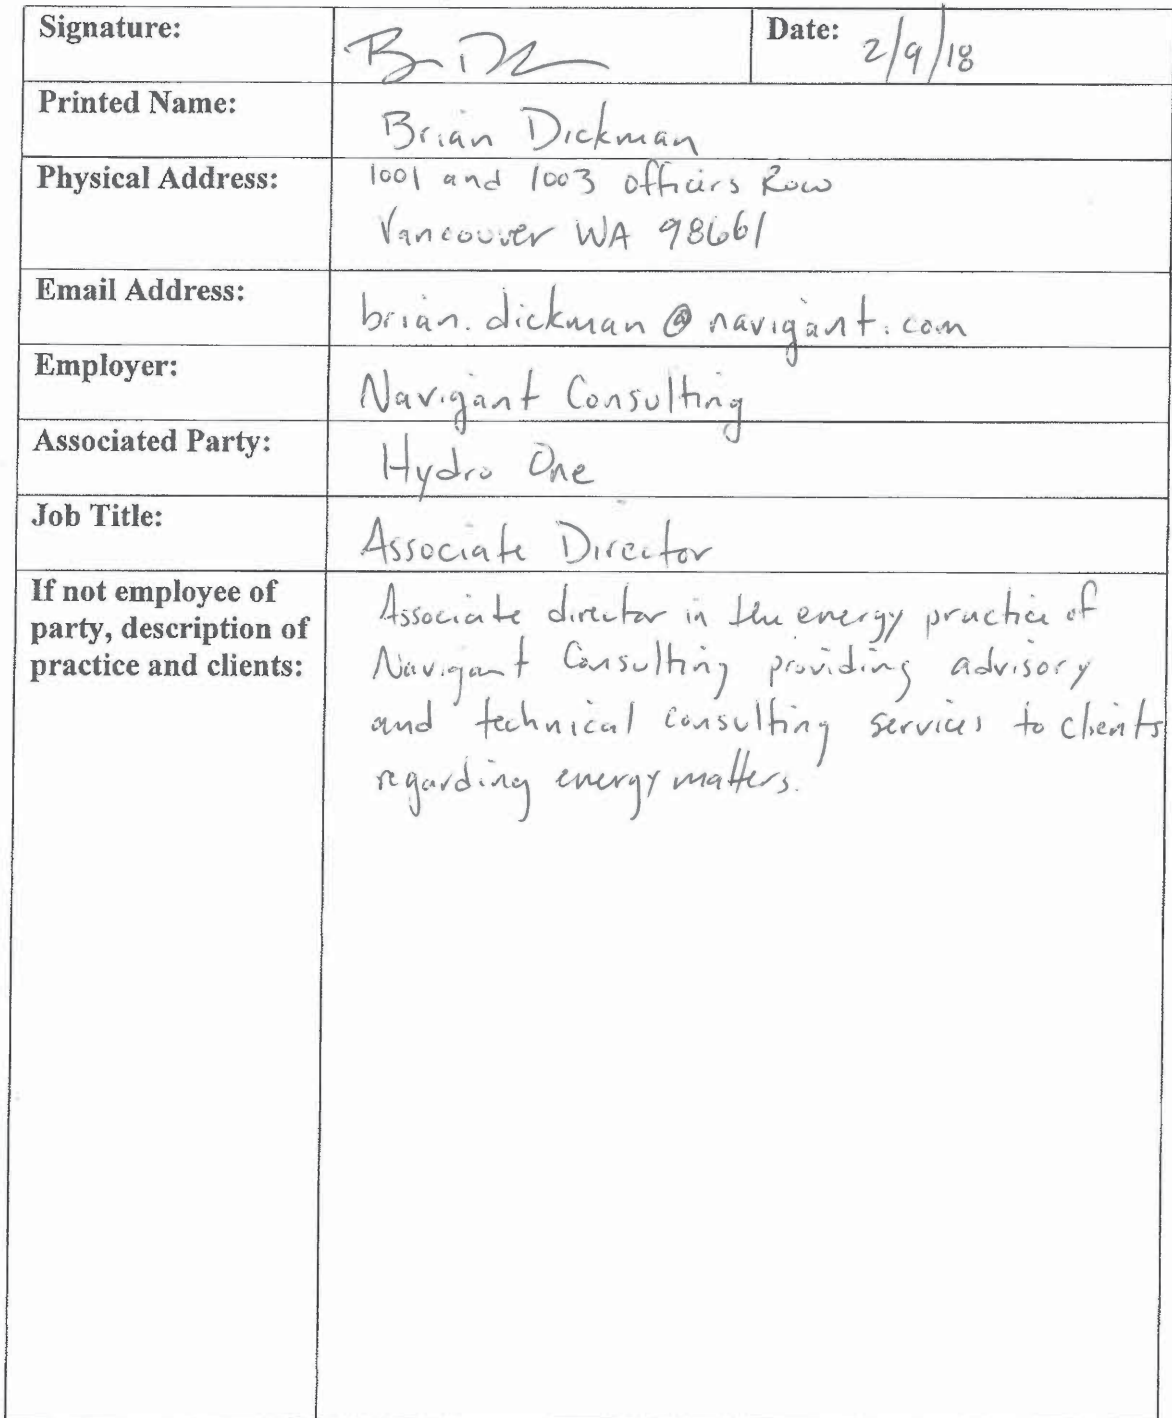 Signature:
Date: 2/9/18
Printed Name: Brian Dickman
Physical Address: 1001 and 1003 officers Row
Vancouver WA 98661
Email Address: brian.dickman@navigant.com
Employer: Navigant Consulting
Associated Party: Hydro One
Job Title: Associate Director
If not employee of
party, description of
practice and clients:
Associate director in the energy practice of
Navigant Consulting providing advisory
and technical consulting services to clients
regarding energy matters.